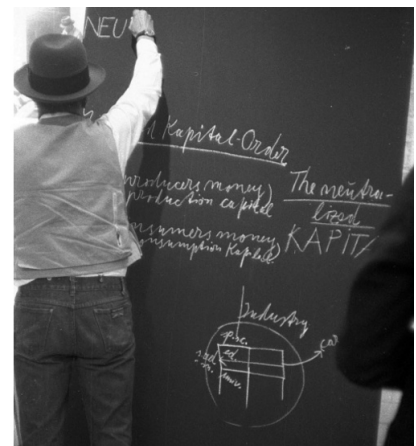 NEU
Kapital-Order
producers money
production capital
The neutra-
lized
consumers money
consumption Kapital
KAPITA
Industry
ed.
univ.